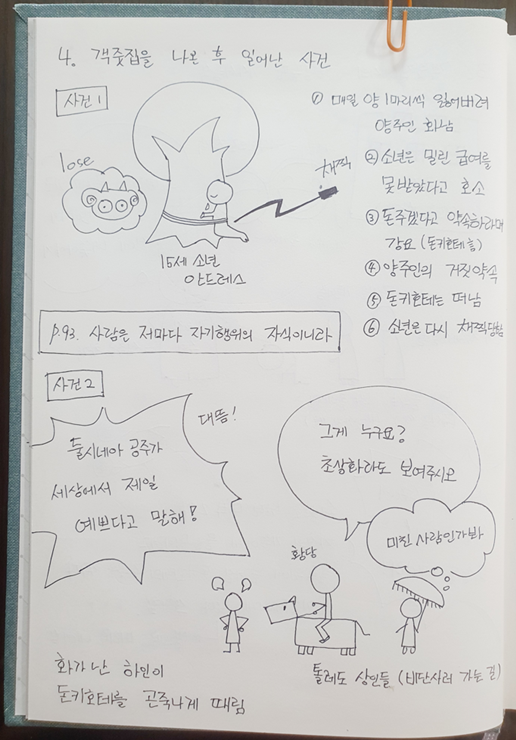 4. 객줏집을 나온 후 일어난 사건
사건 1
lose
채찍
15세 소년
안드레스
① 매일 양 1마리씩 잃어버려
양주인 화남
② 소년은 밀린 급여를
못받았다고 호소
③ 돈주겠다고 약속하라며
강요 (돈키호테 曰)
④ 양주인의 거짓약속
⑤ 돈키호테는 떠남
⑥ 소년은 다시 채찍당함
p.93. 사람은 저마다 자기행위의 자식이니라
사건 2
대뜸!
둘시네아 공주가
세상에서 제일
예쁘다고 말해!
그게 누구요?
초상화라도 보여주시오
미친 사람인가봐
황당
화가 난 하인이
돈키호테를 곤죽나게 때림
톨레도 상인들 (비단사러 가는 길)